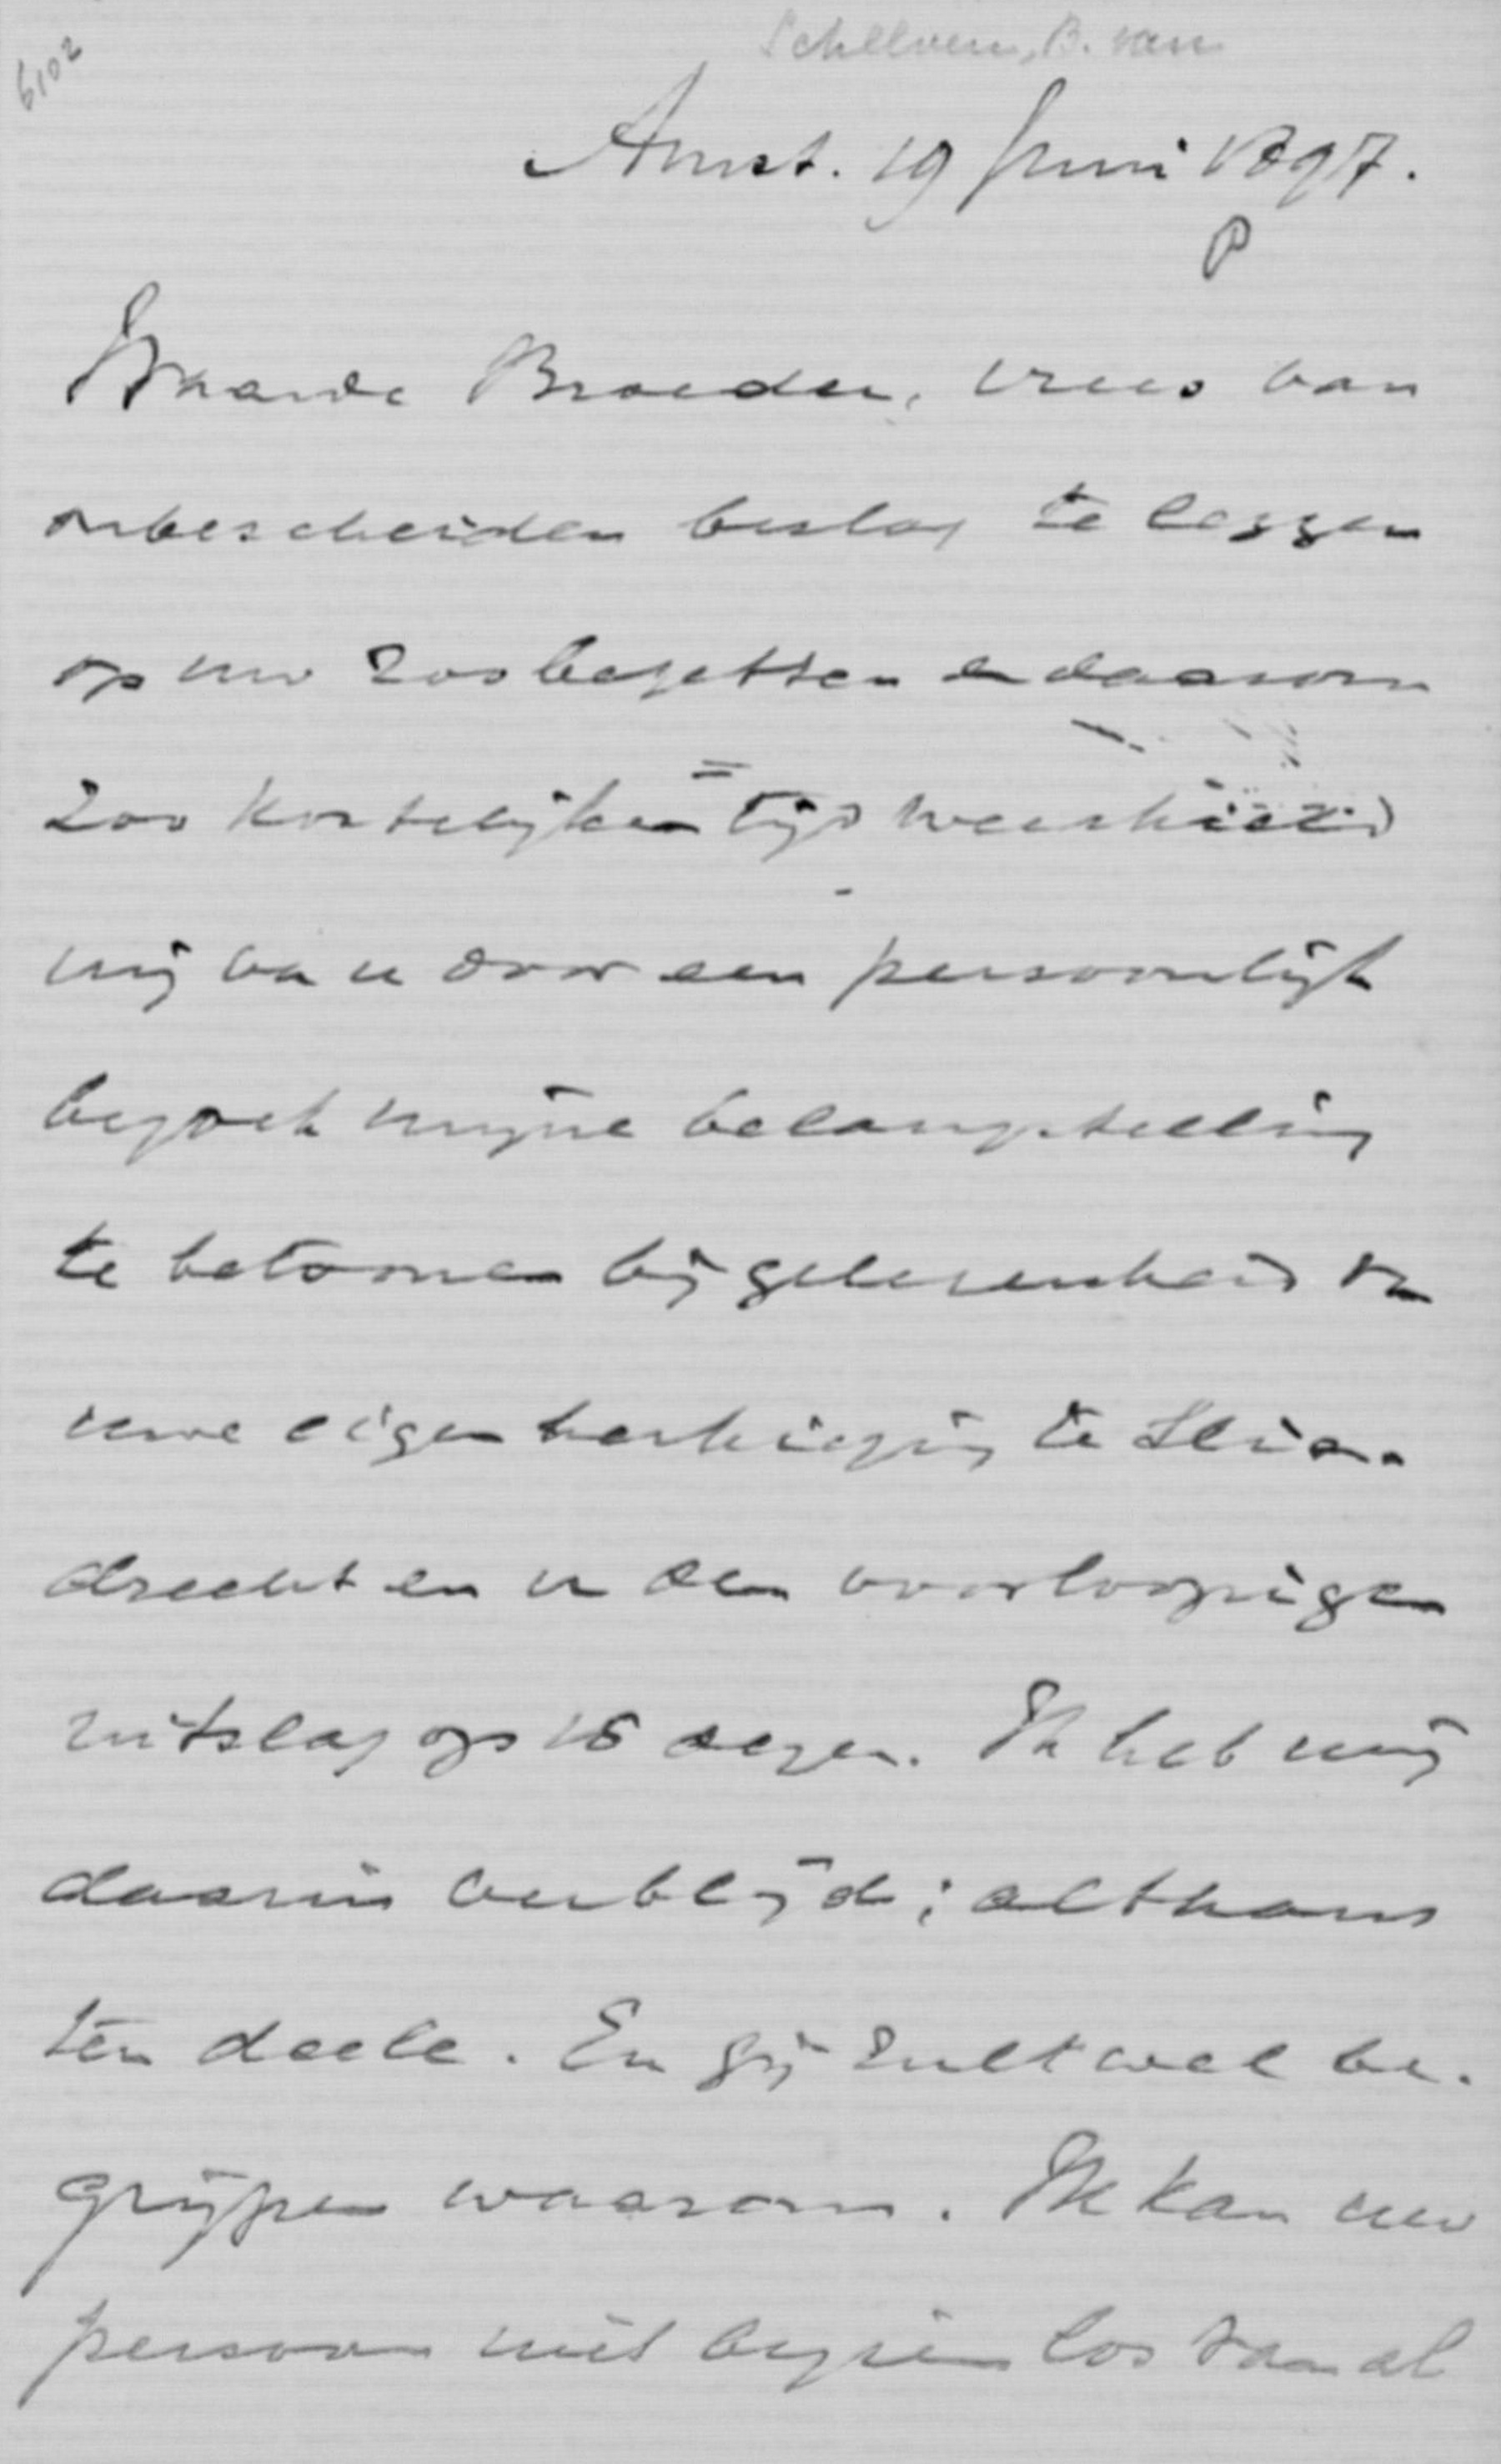 6102
Schelven, B. van
Amst. 19 Juni 1897.
Waarde Broeder, vrees van
onbescheiden beslag te leggen
op uw zoo bezetten en daarom
zoo kostelijken tijd weerhield
mij van door een persoonlijk
bezoek mijne belangstelling
te betoonen bij gelegenheid van
uwe eigen herkiezing te Slie-
drecht en in den voorloopigen
uitslag op 15 dezer. Ik heb mij
daarin verblijd; althans
ten deele. En gij zult wel be-
grijpen waarom. Ik kan uw
persoon niet bezien los van al